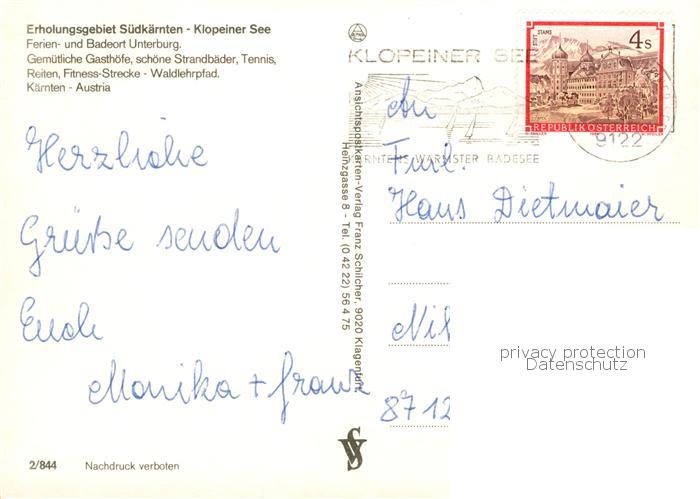 Erholungsgebiet Südkärnten - Klopeiner See
Ferien- und Badeort Unterburg.
Gemütliche Gasthöfe, schöne Strandbäder, Tennis,
Reiten, Fitness-Strecke - Waldlehrpfad.
Kärnten - Austria
Herzliche
Grüße senden
Euch
Monika + Franz
2/844 Nachdruck verboten
Ansichtspostkarten-Verlag Franz Schilcher, 9020 Klagenfurt
Heinzgasse 8 - Tel. (0 42 22) 56 4 75
KLOPEINER SEE
RNTENS WÄRMSTER BADESEE
STIFT STAMS
4 S
REPUBLIK ÖSTERREICH
9122
An
Fam.
Hans Dietmaier
8712
privacy protection
Datenschutz